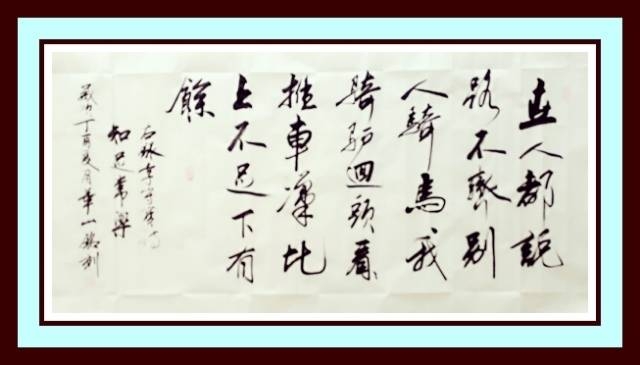 世人都說
路不齊別
人騎馬我
騎驴迴頭看
推車漢比
上不足下有
餘
知足常樂
歲次丁酉夏月華山